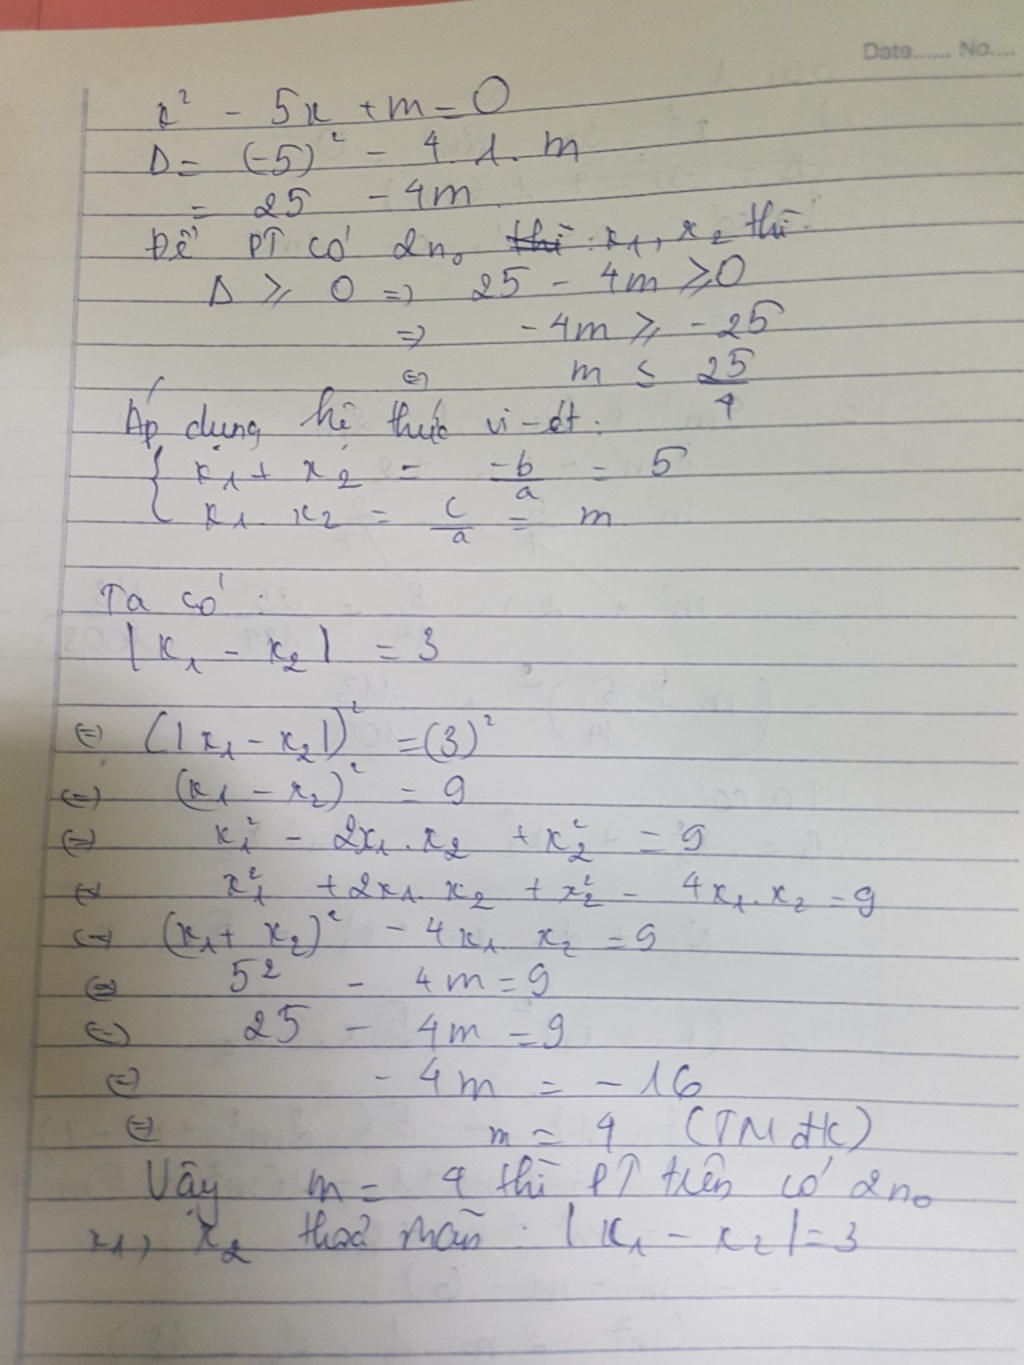 Date...... No....
x² - 5x + m = 0
Δ = (-5)² - 4.1.m
= 25 - 4m
Để PT có 2no thì: x₁, x₂ thì:
Δ ⩾ 0 => 25 - 4m ⩾ 0
=> -4m ⩾ -25
<=> m ≤ 25/4
Áp dụng hệ thức vi-ét:
{ x₁ + x₂ = -b/a = 5
x₁. x₂ = c/a = m
Ta có:
|x₁ - x₂| = 3
<=> (|x₁ - x₂|)² = (3)²
<=> (x₁ - x₂)² = 9
<=> x₁² - 2x₁.x₂ + x₂² = 9
<=> x₁² + 2x₁.x₂ + x₂² - 4x₁.x₂ = 9
<=> (x₁ + x₂)² - 4x₁.x₂ = 9
<=> 5² - 4m = 9
<=> 25 - 4m = 9
<=> -4m = -16
<=> m = 4 (TMđk)
Vậy m = 4 thì PT trên có 2no
x₁, x₂ thoả mãn: |x₁ - x₂| = 3